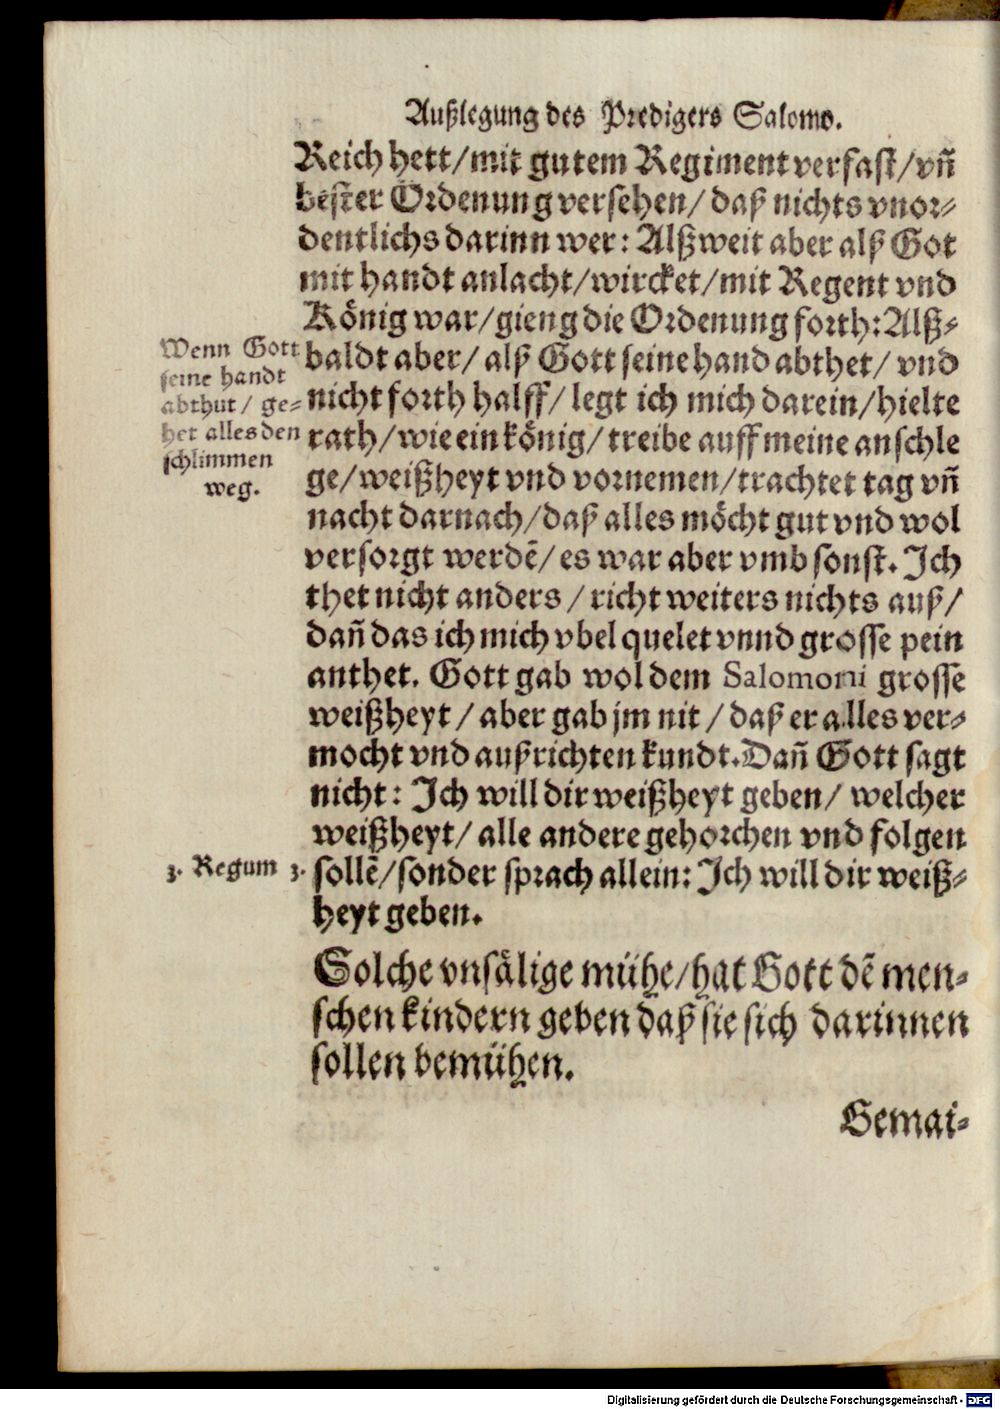 Außlegung des Predigers Salomo.
Reich hett/mit gutem Regiment verfast/vñ
bester Ordenung versehen/ daß nichts vnor⸗
dentlichs darinn wer: Alß weit aber alß Got
mit handt anlacht/wircket/mit Regent vnd
König war/gieng die Ordenung forth: Alß⸗
baldt aber/ alß Gott seine hand abthet/ vnd
nicht forth halff/ legt ich mich darein/hielte
rath/wie ein könig/ treibe auff meine anschle
ge/weißheyt vnd vornemen/trachtet tag vñ
nacht darnach/daß alles möcht gut vnd wol
versorgt werdē/ es war aber vmb sonst. Ich
thet nicht anders / richt weiters nichts auß/
dañ das ich mich vbel quelet vnnd grosse pein
anthet. Gott gab wol dem Salomoni grosse
weißheyt / aber gab jm nit / daß er alles ver⸗
mocht vnd außrichten kundt. Dañ Gott sagt
nicht: Ich will dir weißheyt geben/ welcher
weißheyt/ alle andere gehorchen vnd folgen
sollē/sonder sprach allein: Ich will dir weiß⸗
heyt geben.
Wenn Gott
seine handt
abthut/ ge⸗
het alles den
schlimmen
weg.
3. Regum 3.
Solche vnsälige mühe/hat Gott dē men⸗
schen kindern geben daß sie sich darinnen
sollen bemühen.
Gemai⸗
Digitalisierung gefördert durch die Deutsche Forschungsgemeinschaft - DFG